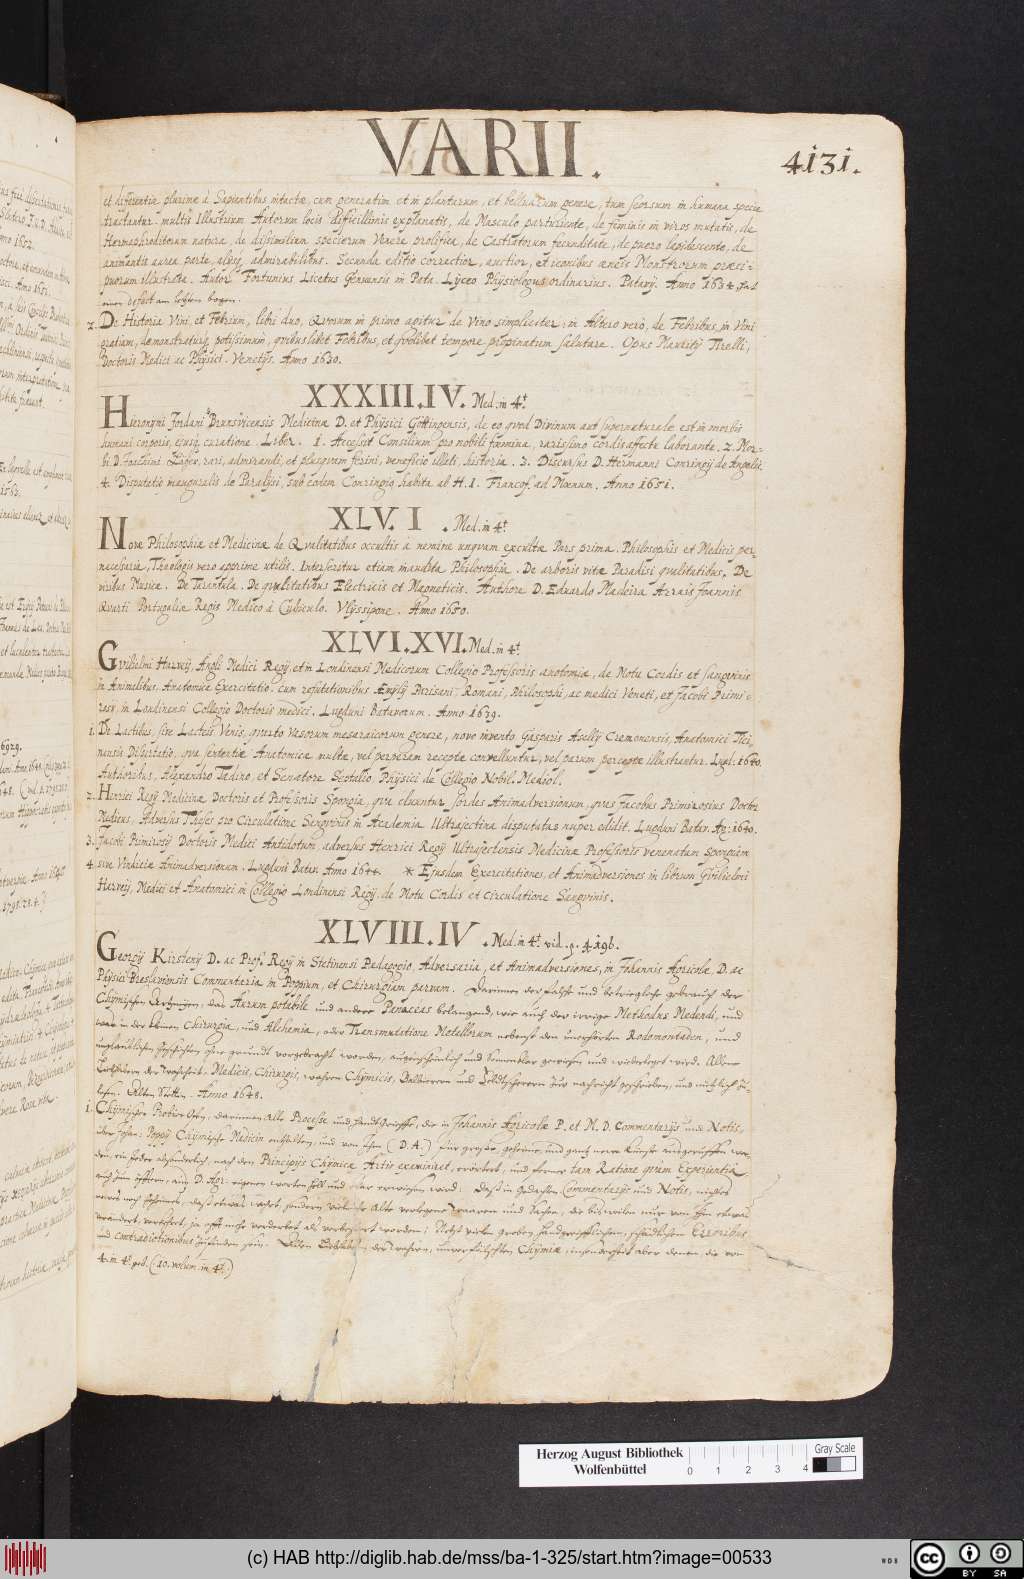 VARII.
4131.
et differentiæ plurimæ à Sapientibus intactæ, cum generatim et in plantarum, et belluarum genere, tum seorsum in humana specie
tractantur. multis Illustrium Autorum locis difficillimis explanatis, de Masculo parturiente, de fœminis in viros mutatis, de
Hermaphroditorum natura, de dissimilium specierum Venere prolifica, de Castratorum fecunditate, de puero lapidescente, de
animantis aurea parte, alijsq. admirabilibus. Secunda editio correctior, auctior, et iconibus æneis Monstrorum præci-
puorum illustrata. Autor Fortunius Licetus Genuensis in Pata. Lyceo Physiologus ordinarius. Patavij. Anno 1634. hat
einen defect am letzten bogen.
2. De Historia Vini et Febrium, libri duo, Quorum in primo agitur de Vino simpliciter: in Altero verò, de Febribus in Vini
gratiam, demonstraturq. potissimum, quibuslibet Febribus, et quolibet tempore propinatum salutare. Opus Mauritij Tirelli,
Doctoris Medici ac Physici. Venetijs. Anno 1630.
XXXIII.IV. Med. in 4t
Hieronymi Jordani Brunsvicensis Medicinæ D. et Physici Göttingensis, de eo quod Divinum aut supernaturale est in morbis
humani corporis, ejusq. curatione. Liber. 1. Accessit Consilium pro nobili fœmina, rarissimo cordis affectu laborante. 2. Mor-
bi D. Joachimi rari, admirandi, et plusquam ferini, veneficio illati, historia. 3. Discursus D. Hermanni Conringij de Angelis.
4. Disputatio inauguralis de Paralysi, sub eodem Conringio habita ab H. I. Francof. ad Mœnum. Anno 1651.
XLV. I . Med. in 4t
Novæ Philosophiæ et Medicinæ de Qualitatibus occultis a nemine unquam excultæ Pars prima. Philosophis et Medicis per-
necessaria, Theologis vero apprime utilis. Interseritur etiam inaudita Philosophia. De arboris vitæ Paradisi qualitatibus. De
viribus Musicæ. De Tarantula. De qualitatibus Electricis et Magneticis. Authore D. Eduardo Madeira Arrais Joannis
Quarti Portugaliæ Regis Medico à Cubiculo. Ulyssipone. Anno 1650.
XLVI.XVI. Med. in 4t
Guilielmi Harveij, Angli Medici Regij, et in Londinensi Medicorum Collegio Professoris anatomiæ, de Motu Cordis et Sanguinis
in Animalibus, Anatomica Exercitatio. cum refutationibus Æmylij Parisani, Romani, Philosophi, ac medici Veneti, et Jacobi Primi-
rosij in Londinensi Collegio Doctoris medici. Lugduni Batavorum. Anno 1639.
1. De Lactibus, sive Lacteis Venis, quarto Vasorum mesaraicorum genere, novo invento Gasparis Asellij Cremonensis, Anatomici Tici-
nensis Dissertatio. qua sententiæ Anatomicæ multæ, vel perperam receptæ convelluntur, vel parum perceptæ illustrantur. Lugd: 1640.
Authoribus, Alexandro Tadino, et Senatore Septalio Physici de Collegio Nobil. Mediol.
2. Henrici Regij Medicinæ Doctoris et Professoris Spongia, qua eluuntur sordes Animadversionum, quas Jacobus Primirosius Doctor
Medicus, Adversus Theses pro Circulatione Sanguinis in Academia Ultrajectina disputatas nuper edidit. Lugduni Batav. Aō: 1640.
3. Jacobi Primirosij Doctoris Medici Antidotum adversus Henrici Regij Ultrajectensis Medicinæ Professoris venenatam Spongiam
4. sive Vindiciæ Animadversionum. Lugduni Batav. Anno 1644. * Ejusdem Exercitationes, et Animadversiones in librum Guilielmi
Harveij, Medici et Anatomici in Collegio Londinensi Regij. de Motu Cordis et Circulatione Sanguinis.
XLVIII.IV . Med. in 4t vid. p. 4196.
Georgij Kirstenij D. ac Prof. Regij in Stetinensi Pædagogio, Adversaria, et Animadversiones, in Johannis Agricolæ D. ac
Physici Breslaviensis Commentaria in Poppium, et Chirurgiam parvam. Darinnen der falsch und betriegliche gebrauch der
Chymischen Artzneyen, das Aurum potabile und andere Panaceas belangend, wie auch der irrige Methodus Medendi, und
was in der kleinen Chirurgia, und Alchemia, oder Transmutatione Metallorum nebenst den unerhörten Rodomontaden, und
unglaublichen Geschichten ohne grundt vorgebracht worden, augenscheinlich und Sonnenklar gewiesen und wiederleget wird. Allen
Liebhabern der Wahrheit, Medicis, Chirurgis, wahren Chymicis, Balbierern und Feldtscherern zur nachricht geschrieben, und nützlich zu
lesen. Alten Stettin. Anno 1648.
1. Chymischer Probier Ofen, darinnen Alle Processe und handtgriffe, die in Johannis Agricolæ P. et M. D. Commentarijs und Notis,
über Johan: Poppij Chymische Medicin enthalten, und von Ihm (D. A.) für grosse, geheime, und gantz newe Künste ausgeruffen wer-
den, ein jeder absonderlich, nach den Principijs Chymicæ Artis examiniret, erörtert, und ferner tam Ratione quam Experientia
auch zum öfftern, aus D. Agr. eigenen worten hell und klar erwiesen wird: Daß in gedachten Commentarijs und Notis, nichts
newes noch geheimes, daß etwas werth, sondern vielmehr alte verlegene waaren und sachen, die bisweilen nur von Ihm etwas
verändert, versetzt, ja offt mehr verderbet als verbessert worden: Nebst vielen groben, handgreifflichen, schädlichen Erroribus
und Contradictionibus zufinden sein. Allen Liebhabern der wahren, unverfälschten Chymiæ, insonderheit aber denen, die von
4. in 4t ged. (10. volum. in 4t.)
Herzog August Bibliothek
Wolfenbüttel
Gray Scale
0 1 2 3 4
(c) HAB http://diglib.hab.de/mss/ba-1-325/start.htm?image=00533
WDB
cc BY SA